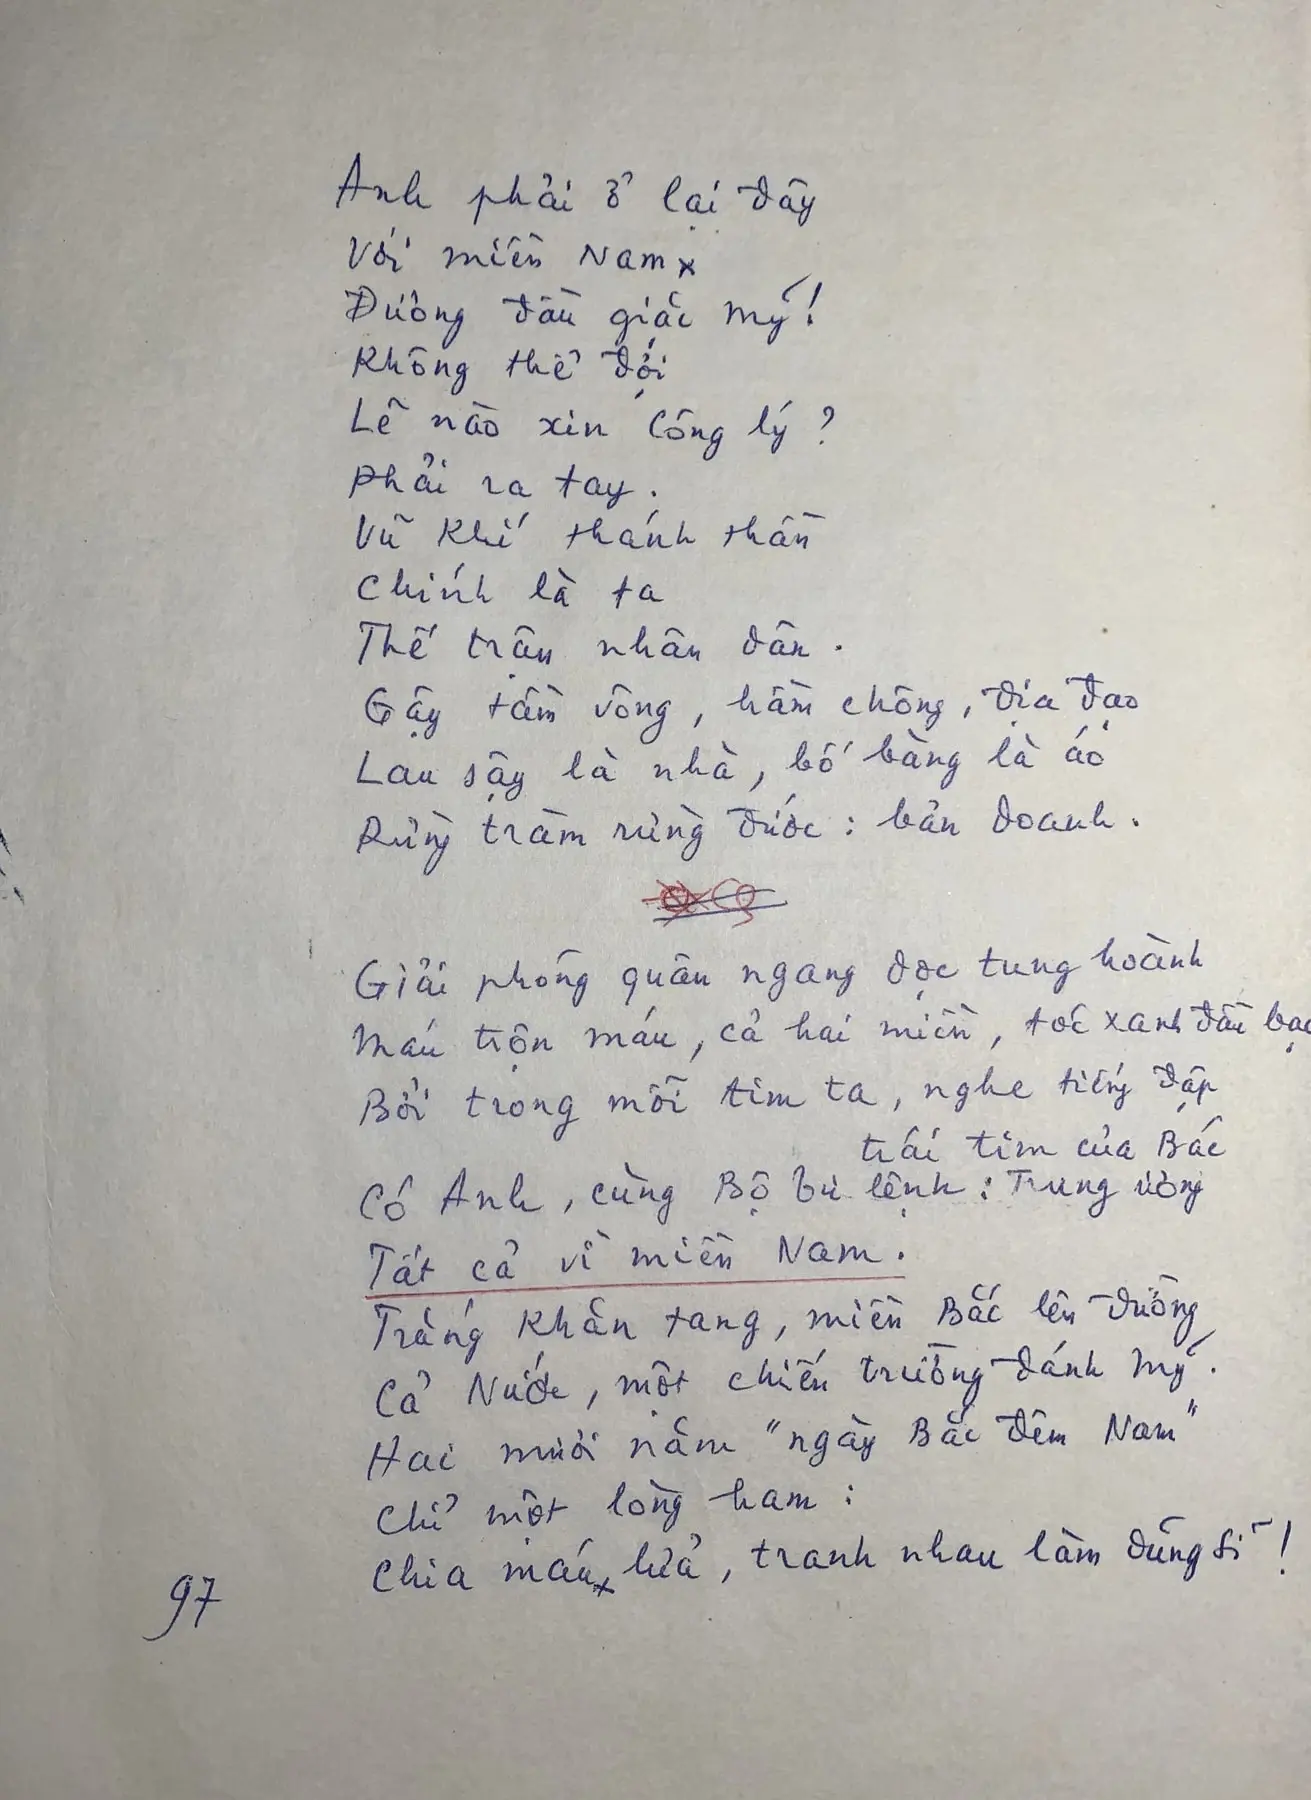 Anh phải ở lại đây
Với miền Nam
Đương đầu giặc Mỹ!
Không thể đợi
Lẽ nào xin công lý?
Phải ra tay.
Vũ khí thánh thần
Chính là ta
Thế trận nhân dân.
Gậy tầm vông, hầm chông, địa đạo
Lau sậy là nhà, bố bàng là áo
Rừng tràm rừng đước: bản doanh.
Giải phóng quân ngang dọc tung hoành
Máu trộn máu, cả hai miền, tóc xanh đầu bạc
Bởi trong mỗi tim ta, nghe tiếng đập
trái tim của Bác
Có Anh, cùng Bộ tư lệnh: Trung ương
Tất cả vì miền Nam.
Trắng khăn tang, miền Bắc lên đường
Cả Nước, một chiến trường đánh Mỹ.
Hai mươi năm "ngày Bắc đêm Nam"
Chỉ một lòng ham:
Chia máu lửa, tranh nhau làm dũng sĩ!
97